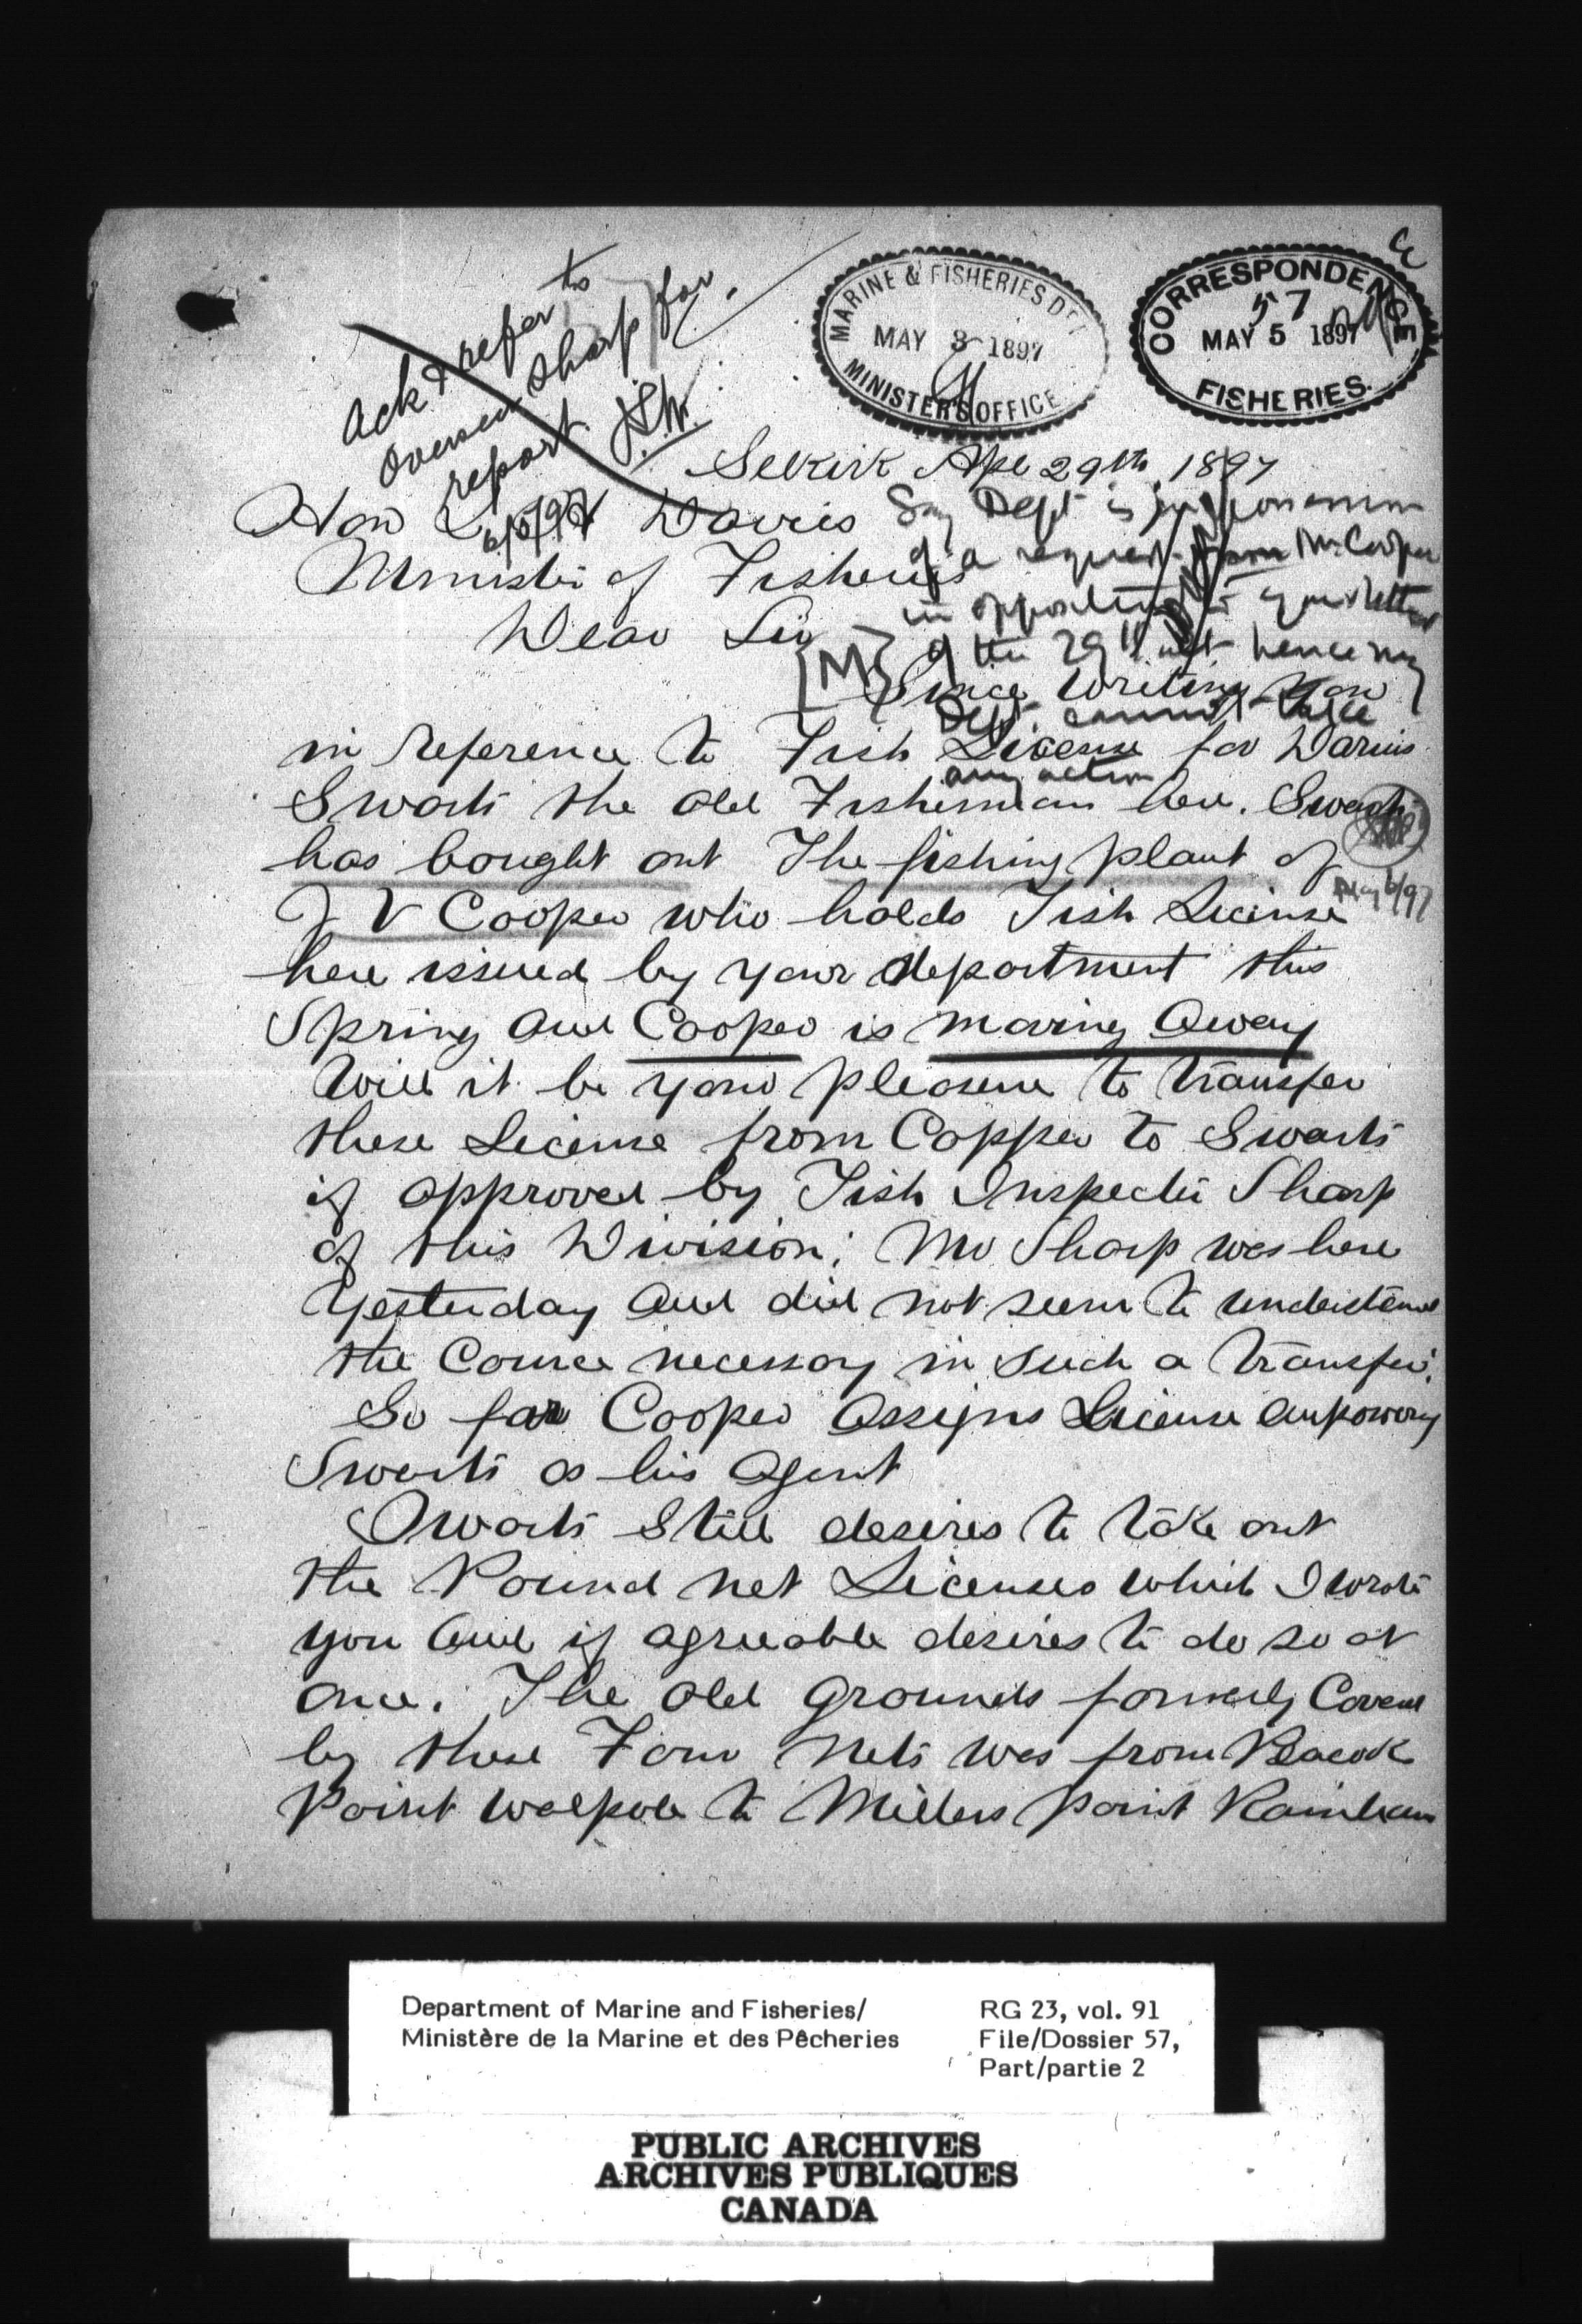 Ack & refer to
Overseer Sharp for
report. 
6/5/97
MARINE & FISHERIES DEPT
MAY 3 1897
MINISTER'S OFFICE
CORRESPONDENCE
57
MAY 5 1897
FISHERIES.
Selkirk Apl 29th, 1897
Say Dept is in
of a request from Mr. Cooper
in opposition to your letter
of the 29th ult hence my
Dept. cannot take
any action
May 6/97
Hon L Davies
Minister of Fisheries
Dear Sir
Since writing you
in reference to Fish License for Darius
Swarts the old Fisherman here. Swarts
has bought out The fishing plant of
J V Cooper who holds Fish License
here issued by your department this
Spring and Cooper is moving away
Will it be your pleasure to transfer
these License from Copper to Swarts
if approved by Fish Inspector Sharp
of this Division; Mr Sharp was here
Yesterday and did not seem to understand
the Cource necessary in such a transfer.
So far Cooper assigns License empowering
Swarts as his agent
Swarts Still desires to take out
the Pound net Licenses which I wrote
you and if agreeable desires to do so at
once. The old grounds formerly Covered
by these Four nets was from Peacock
Point Walpole to Millers point Rainham
Department of Marine and Fisheries/
Ministère de la Marine et des Pêcheries
RG 23, vol. 91
File/Dossier 57,
Part/partie 2
PUBLIC ARCHIVES
ARCHIVES PUBLIQUES
CANADA